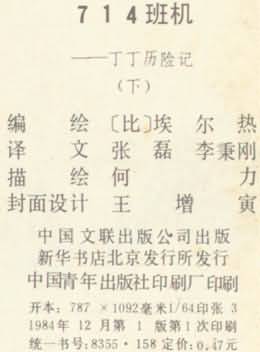 714班机
——丁丁历险记
（下）
编 绘 〔比〕埃 尔 热
译 文 张 磊 李秉刚
描 绘 何 力
封面设计 王 增 寅
中国文联出版公司出版
新华书店北京发行所发行
中国青年出版社印刷厂印刷
开本：787 ×1092毫米1/64印张 3
1984年 12月第 1 版第1次印刷
统一书号：8355·158 定价：0.47元